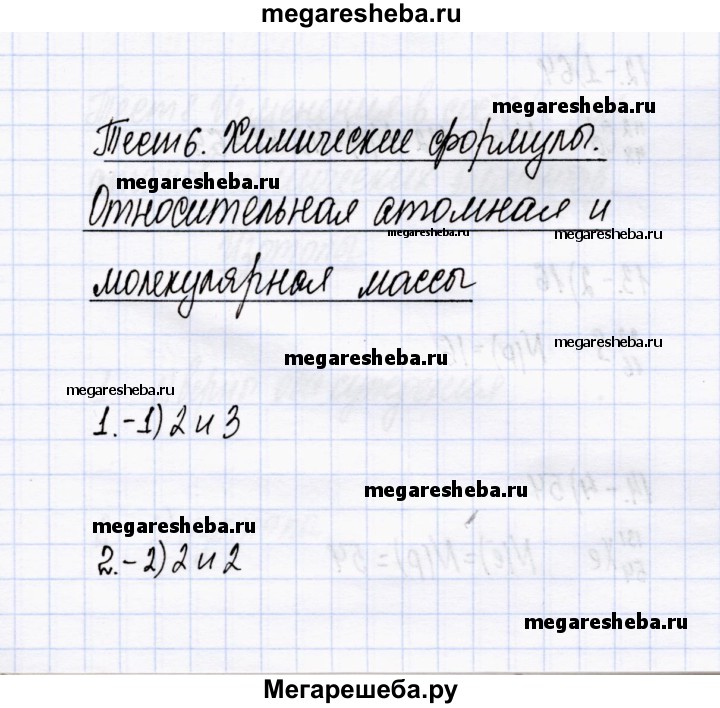 megaresheba.ru
megaresheba.ru
Тест 6. Химические формулы.
megaresheba.ru
Относительная атомная и
megaresheba.ru
megaresheba.ru
молекулярная массы
megaresheba.ru
megaresheba.ru
megaresheba.ru
1.-1) 2 и 3
megaresheba.ru
megaresheba.ru
2.-2) 2 и 2
megaresheba.ru
Мегарешеба.ру